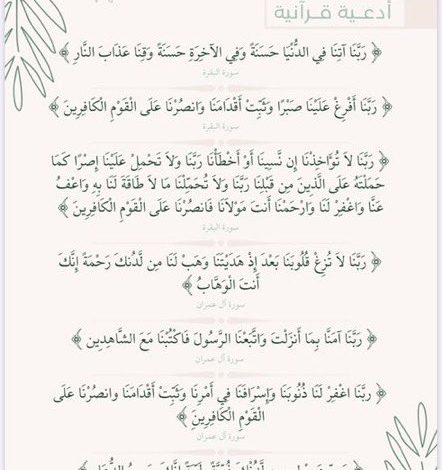 أدعية قرآنية
﴿ رَبَّنَا آتِنَا فِي الدُّنْيَا حَسَنَةً وَفِي الآخِرَةِ حَسَنَةً وَقِنَا عَذَابَ النَّارِ ﴾
سورة البقرة
﴿ رَبَّنَا أَفْرِغْ عَلَيْنَا صَبْرًا وَثَبِّتْ أَقْدَامَنَا وَانصُرْنَا عَلَى الْقَوْمِ الْكَافِرِينَ ﴾
سورة البقرة
﴿ رَبَّنَا لاَ تُؤَاخِذْنَا إِن نَّسِينَا أَوْ أَخْطَأْنَا رَبَّنَا وَلاَ تَحْمِلْ عَلَيْنَا إِصْرًا كَمَا
حَمَلْتَهُ عَلَى الَّذِينَ مِن قَبْلِنَا رَبَّنَا وَلاَ تُحَمِّلْنَا مَا لاَ طَاقَةَ لَنَا بِهِ وَاعْفُ
عَنَّا وَاغْفِرْ لَنَا وَارْحَمْنَا أَنتَ مَوْلاَنَا فَانصُرْنَا عَلَى الْقَوْمِ الْكَافِرِينَ ﴾
سورة البقرة
﴿ رَبَّنَا لاَ تُزِغْ قُلُوبَنَا بَعْدَ إِذْ هَدَيْتَنَا وَهَبْ لَنَا مِن لَّدُنكَ رَحْمَةً إِنَّكَ
أَنتَ الْوَهَّابُ ﴾
سورة آل عمران
﴿ رَبَّنَا آمَنَّا بِمَا أَنزَلْتَ وَاتَّبَعْنَا الرَّسُولَ فَاكْتُبْنَا مَعَ الشَّاهِدِينَ ﴾
سورة آل عمران
﴿ ربَّنَا اغْفِرْ لَنَا ذُنُوبَنَا وَإِسْرَافَنَا فِي أَمْرِنَا وَثَبِّتْ أَقْدَامَنَا وانصُرْنَا عَلَى
الْقَوْمِ الْكَافِرِينَ ﴾
سورة آل عمران